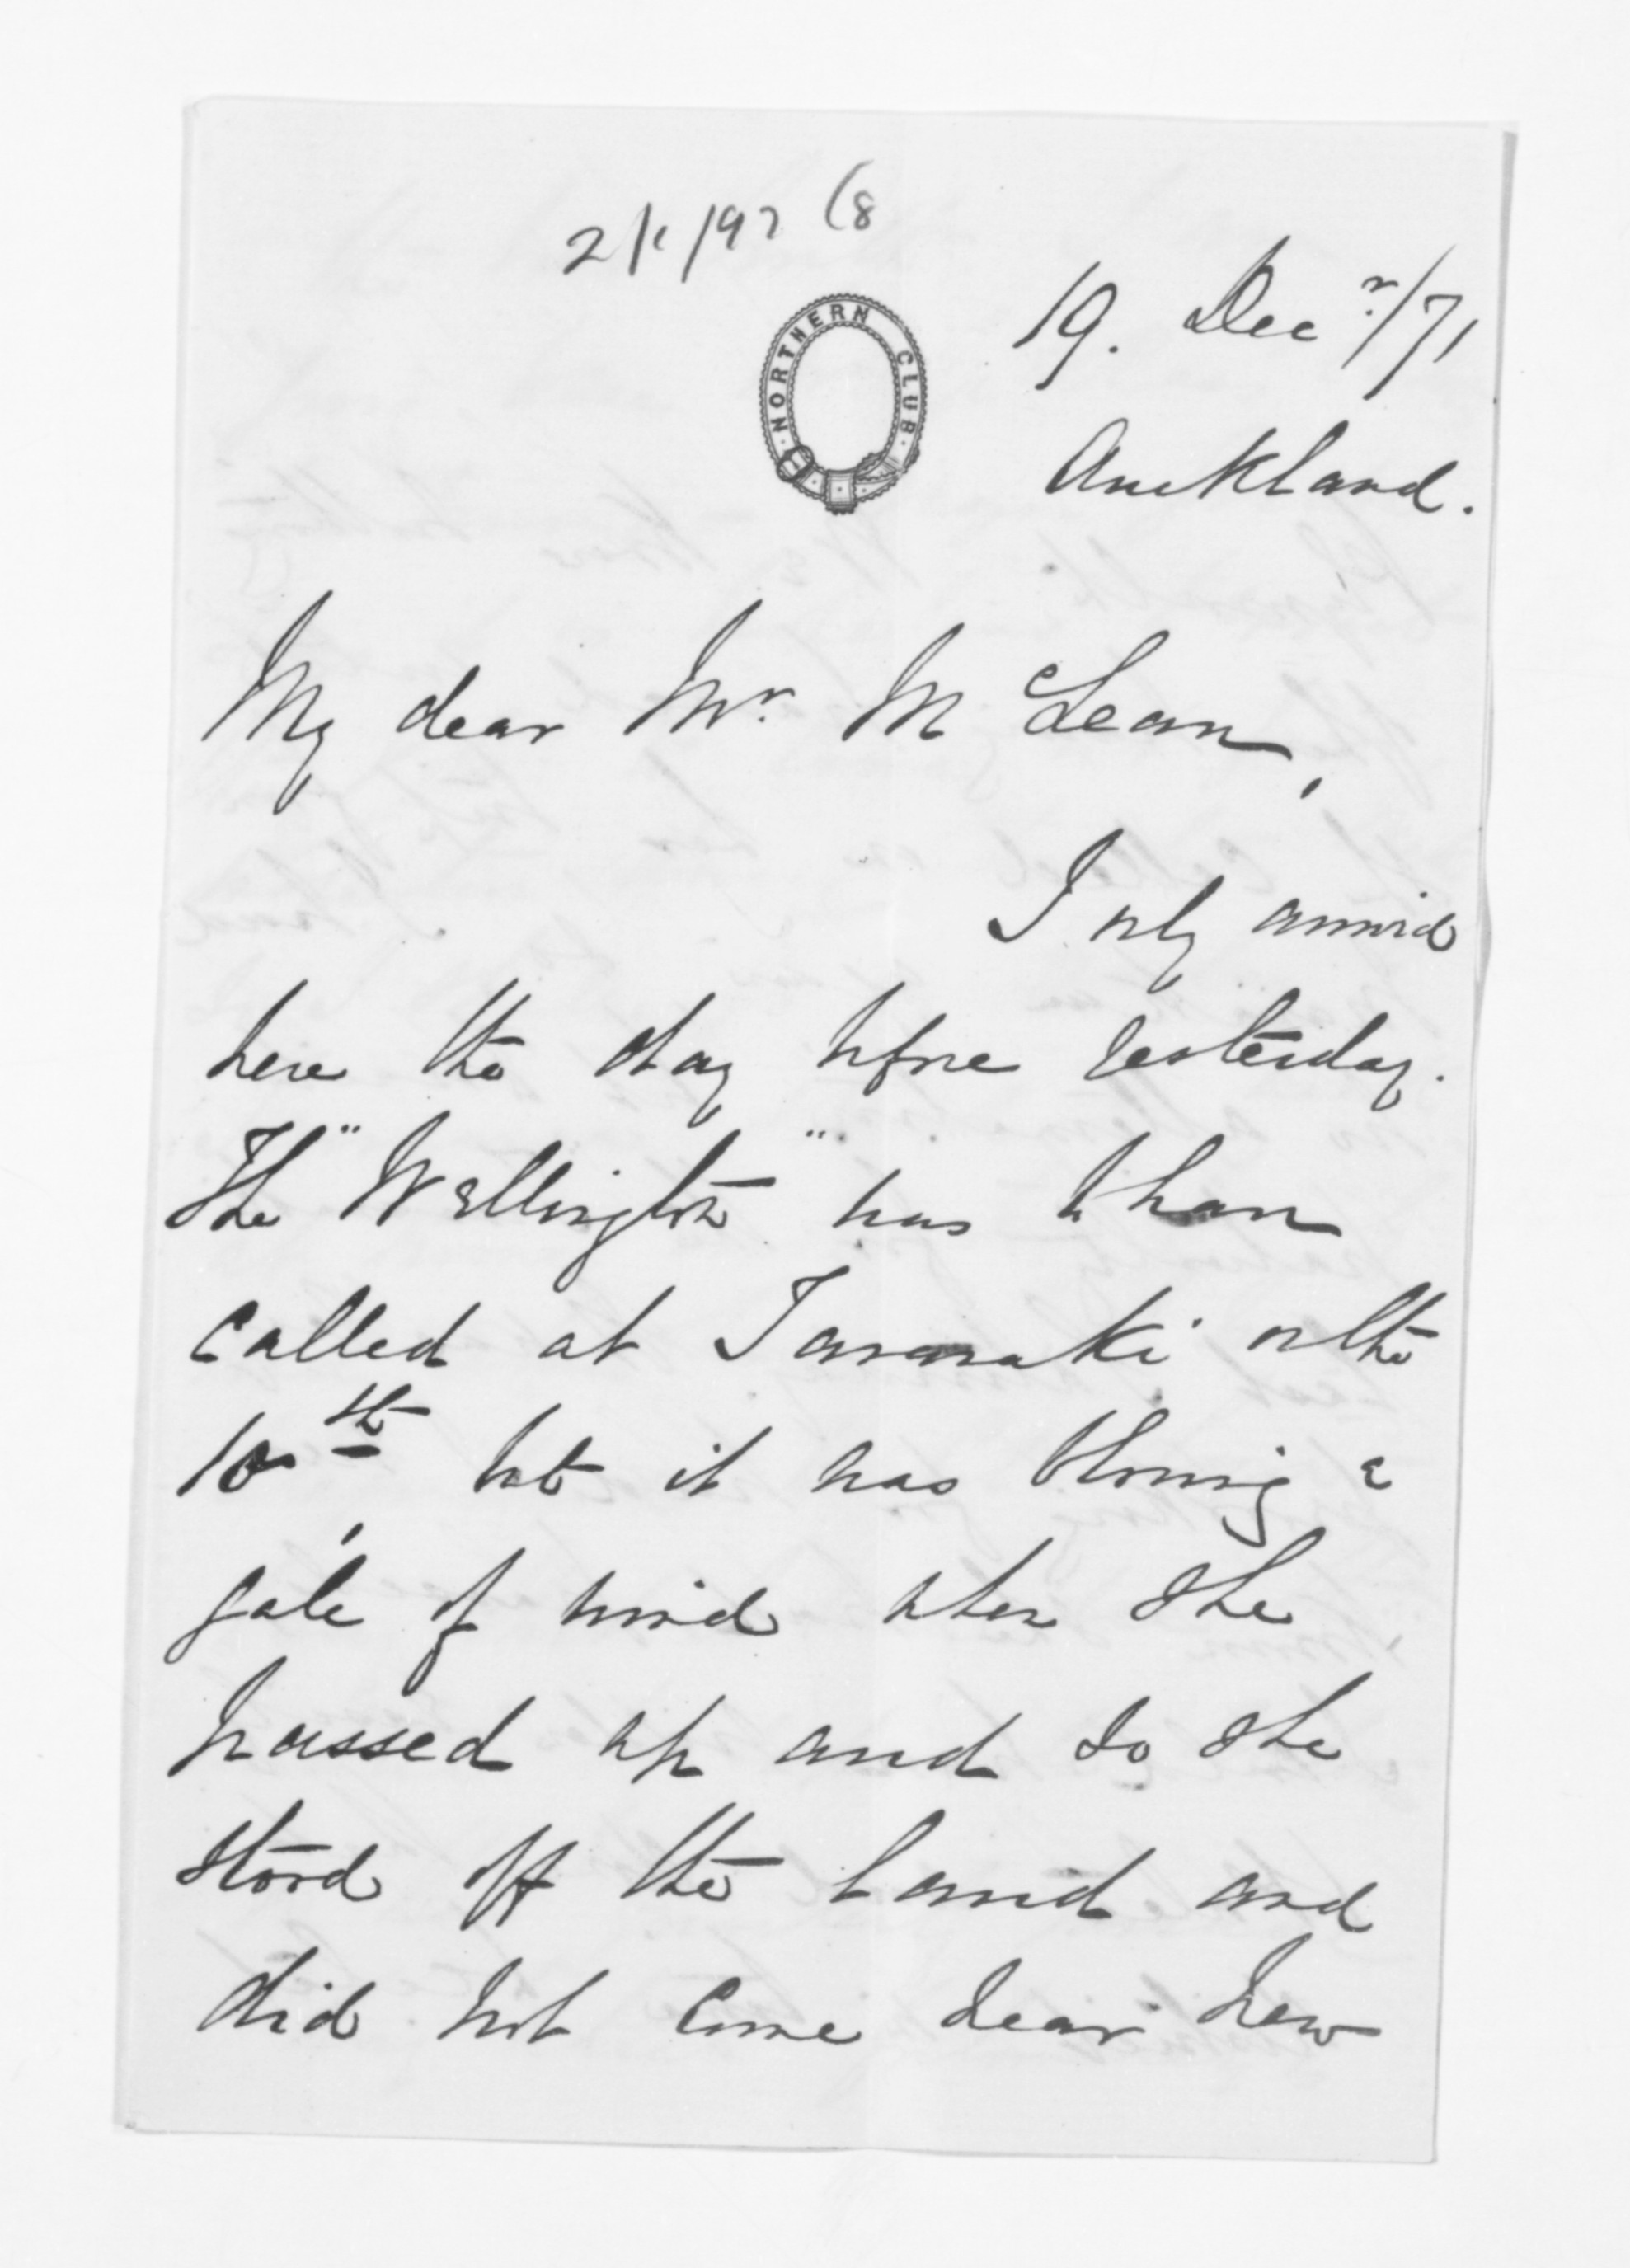 2/1/97 (8
NORTHERN CLUB
19. Decr/71
Auckland.
My dear Mr. McLean,
I only arrived
here the day before yesterday.
The "Wellington" was to have
called at Taranaki on the
10th but it was blowing a
gale of wind when she
passed up and so she
stood off the land and
did not come near New